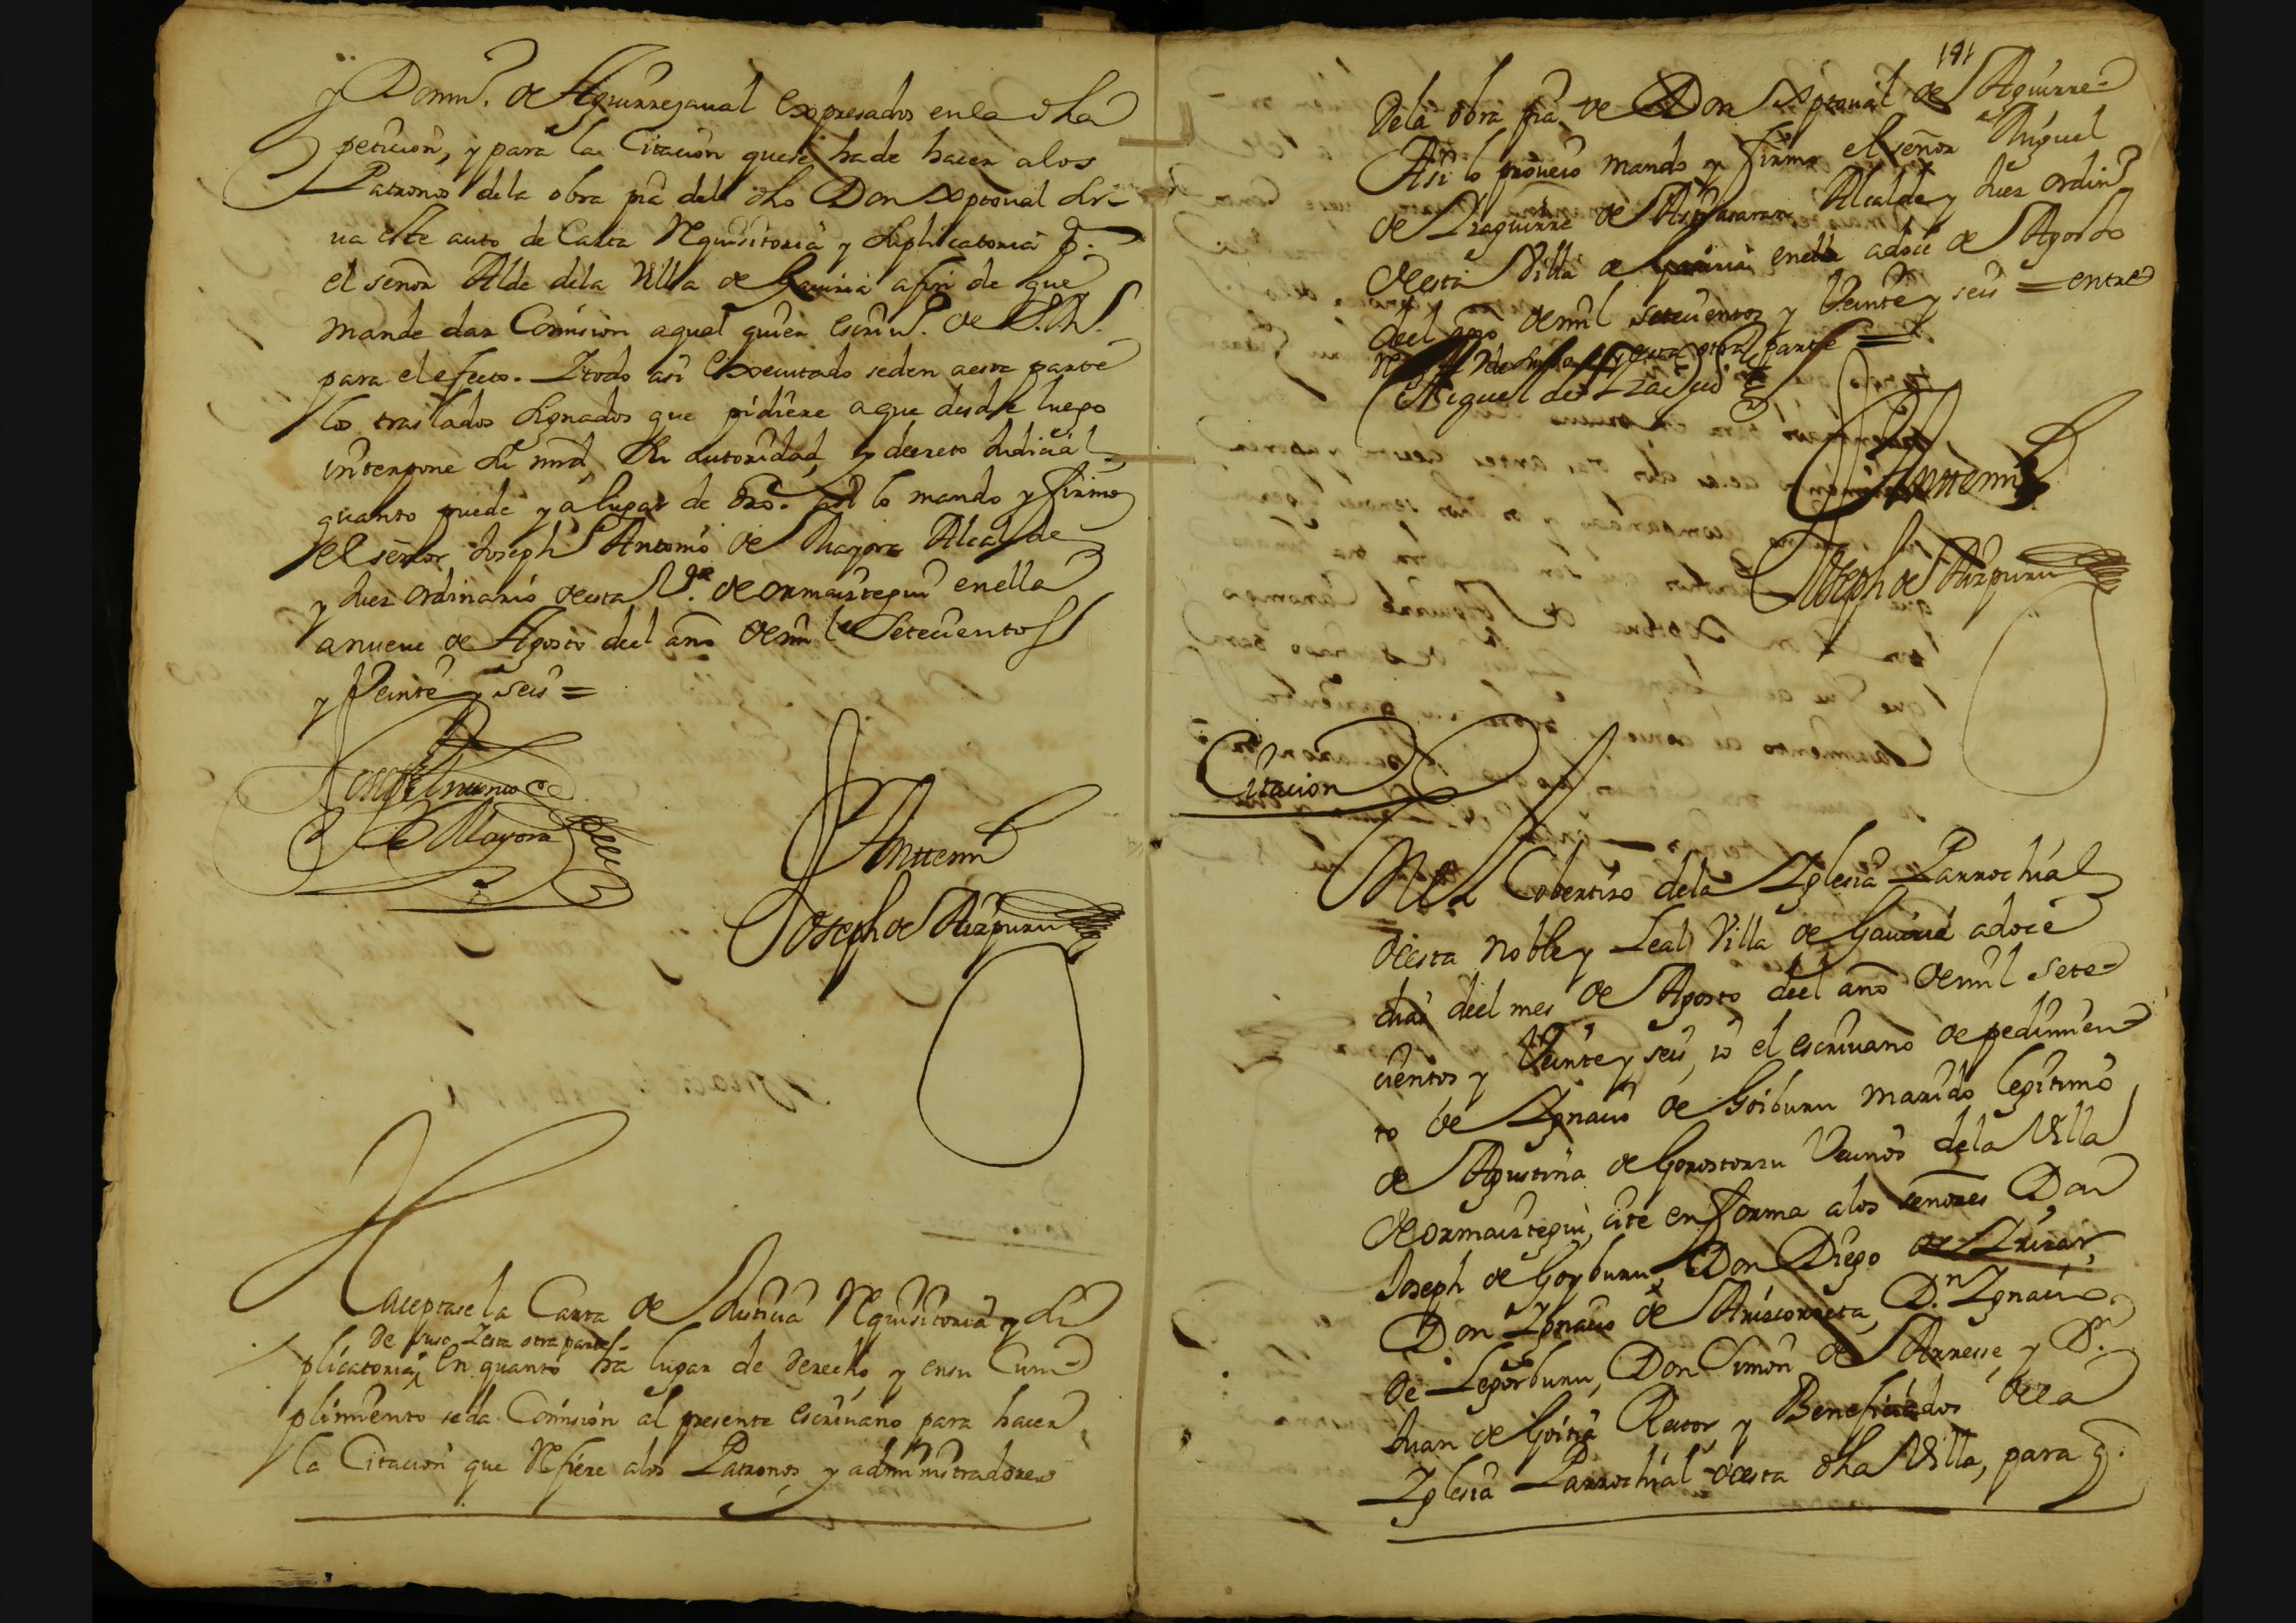 y Domin.ᵒ de Aguirrezaual Expresados en la dha
peticion, y para la Citacion que se ha de hacer a los
Patronos de la obra pia del dho Don Xptoual sir-
ua este auto de Carta Requisitoria y suplicatoria p.ᵃ
el señor Alde de la Villa de Gauiria a fin de que
mande dar Comision a qual quier escriu.ᵒ de S. M.
para el efecto. Y todo asi Executado se den a esta parte
los traslados signados que pidiere a que desde luego
interpone su md. su autoridad, y decreto Judicial
quanto puede y a lugar de dro. asi lo mando y firmo
el señor Joseph Antonio de Mayora Alcalde
y Juez ordinario de esta V.ᵃ de ormaiztegui en ella
a nueue de Agosto deel año de mil Setecientos
y Veinte y seis =
Joseph Antonio de
Mayora
Antte mi
Joseph de Aizpuru
Aceptase la Carta de Justicia Requisitoria y su
de suso, y esta otra parte
plicatoria, en quanto ha lugar de derecho, y en su Cum-
plimiento se da Comision al presente escriuano para hacer
la Citacion que Refiere a los Patronos, y administradores
191
de la obra pia de Don Xptoual de Aguirre=
Asi lo proueio mando y firmo el señor Miguel
de Izaguirre de Alcalde y Juez ordin.ᵒ
de esta Villa de Gauiria en ella a doce de Agosto
deel año de mil setecientos y Veinte y seis = entre
Re y esta otra parte =
Miguel de Izaguirre
Antte mi
Joseph de Aizpuru
Citacion
En el Cobertizo de la Yglesia Parrochial
de esta Noble y Leal Villa de Gauiria a doce
dias deel mes de Agosto deel año de mil Sete-
cientos y Veinte y seis, io el escriuano de pedimien-
to de Ygnacio de Goiburu marido legitimo
de Agustina de Gorostorzu Vecinos de la Villa
de ormaiztegui, cite en forma a los señores Don
Joseph de Goyburu, Don Diego de Irizar,
Don Ygnacio de Ariscorreta, D.ⁿ Ygnacio
de Legorburu, Don Simon de Arresse, y D.ⁿ
Juan de Goitia Rector, y Beneficiados de la
Yglesia Parrochial de esta dha Villa, para q.ᵉ